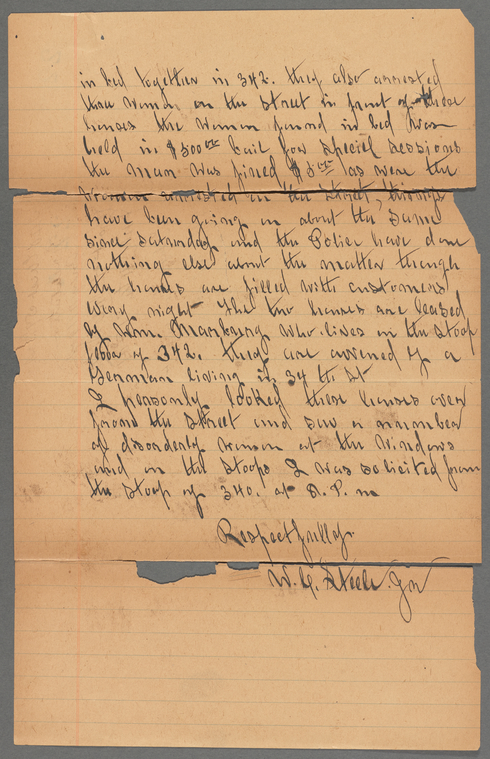 in bed together in 342. they also arrested
three women on the street in front of these
houses the woman found in bed was
held in $500 00 bail for special sessions
the man was fined $5 00 as were the
women arrested on the street, things
have been going on about the same
since saturday and the Police have done
nothing else about the matter though
the houses are filled with customers
every night The two houses are leased
by Wm. who lives on the stoop
floor of 342. they are owened by a
German living in 34 th St
I personly looked these houses over
from the street and saw a number
of disorderly women at the windows
and on the stoops I was solicited from
the stoop of 340. at 8. P. m
Respectfully
W. C. Steele Jr